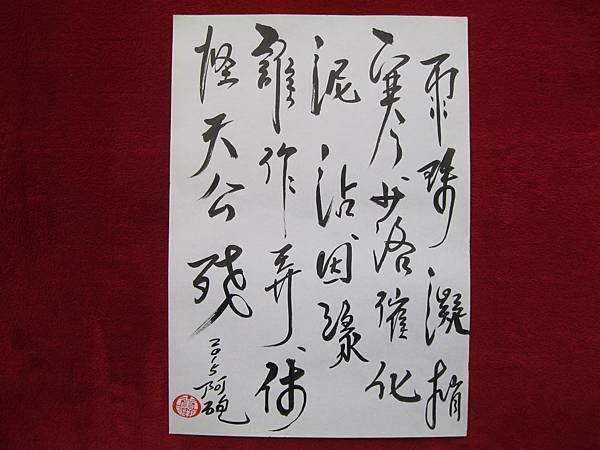 雨珠凝梢
寒落催化
泥沾因緣
誰作弄休
怪天公殘
2015阿砲